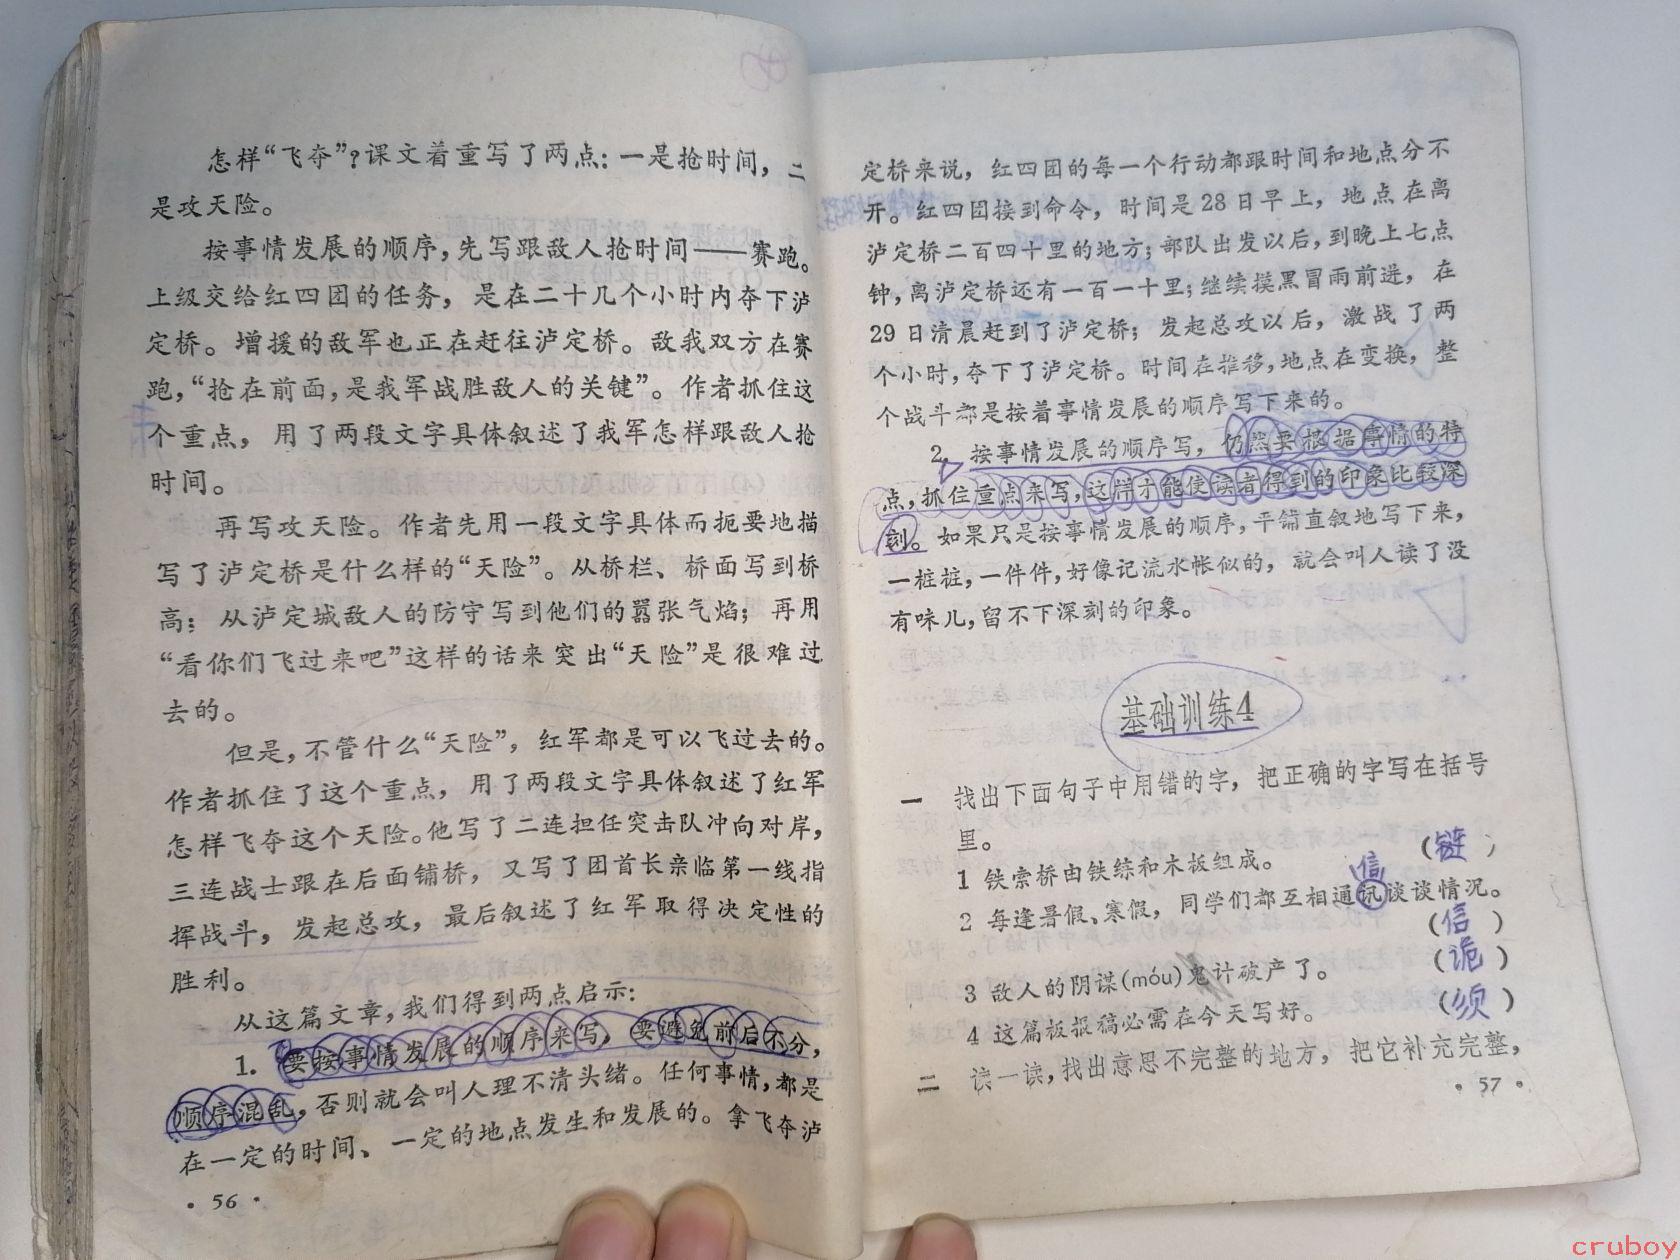 怎样“飞夺”?课文着重写了两点:一是抢时间,二
是攻天险。
按事情发展的顺序,先写跟敌人抢时间——赛跑。
上级交给红四团的任务,是在二十几个小时内夺下泸
定桥。增援的敌军也正在赶往泸定桥。敌我双方在赛
跑,“抢在前面,是我军战胜敌人的关键”。作者抓住这
个重点,用了两段文字具体叙述了我军怎样跟敌人抢
时间。
再写攻天险。作者先用一段文字具体而扼要地描
写了泸定桥是什么样的“天险”。从桥栏、桥面写到桥
高;从泸定城敌人的防守写到他们的嚣张气焰;再用
“看你们飞过来吧”这样的话来突出“天险”是很难过
去的。
但是,不管什么“天险”,红军都是可以飞过去的。
作者抓住了这个重点,用了两段文字具体叙述了红军
怎样飞夺这个天险。他写了二连担任突击队冲向对岸,
三连战士跟在后面铺桥,又写了团首长亲临第一线指
挥战斗,发起总攻,最后叙述了红军取得决定性的
胜利。
从这篇文章,我们得到两点启示:
1.要按事情发展的顺序来写,要避免前后不分,
顺序混乱,否则就会叫人理不清头绪。任何事情,都是
在一定的时间、一定的地点发生和发展的。拿飞夺泸
·56·
定桥来说,红四团的每一个行动都跟时间和地点分不
开。红四团接到命令,时间是28日早上,地点在离
泸定桥二百四十里的地方;部队出发以后,到晚上七点
钟,离泸定桥还有一百一十里;继续摸黑冒雨前进,在
29日清晨赶到了泸定桥;发起总攻以后,激战了两
个小时,夺下了泸定桥。时间在推移,地点在变换,整
个战斗都是按着事情发展的顺序写下来的。
2.按事情发展的顺序写,仍然要根据事情的特
点,抓住重点来写,这样才能使读者得到的印象比较深
刻。如果只是按事情发展的顺序,平铺直叙地写下来,
一桩桩,一件件,好像记流水帐似的,就会叫人读了没
有味儿,留不下深刻的印象。
基础训练4
一 找出下面句子中用错的字,把正确的字写在括号
里。
1 铁索桥由铁练和木板组成。 (链)
信
2 每逢暑假、寒假,同学们都互相通讯谈谈情况。
(信)
3 敌人的阴谋(móu)鬼计破产了。 (诡)
4 这篇板报稿必需在今天写好。 (须)
二 读一读,找出意思不完整的地方,把它补充完整,
·57·
cruboy